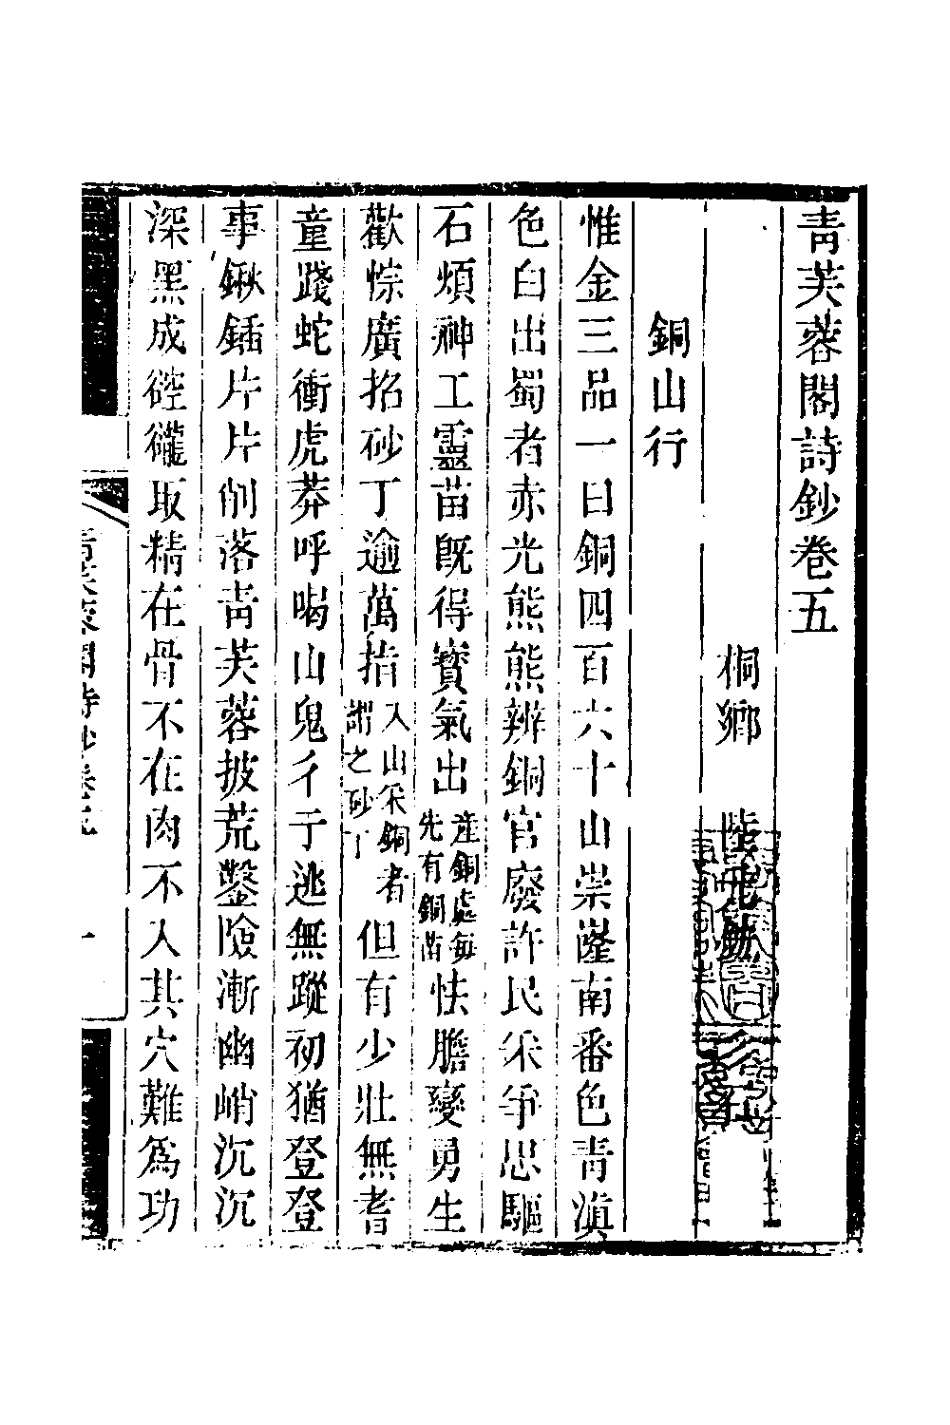 青芙蓉閣詩鈔卷五
桐鄉 陸元鋐 著
銅山行
惟金三品一曰銅四百六十山崇窿南番色青滇
色白出蜀者赤光熊熊辨銅官廢許民采爭思驅
石煩神工靈苗旣得寳氣出產銅處每先有銅苗怯膽變勇生
歡悰廣招砂丁逾萬指入山采銅者謂之砂丁但有少壯無耆
童踐蛇衝虎莽呼喝山鬼彳亍逃無蹤初猶登登
事鍬鍤片片削落青芙蓉披荒鑿險漸幽峭沉沉
深黑成硿礲取精在骨不在肉不入其穴難爲功
青芙蓉閣詩鈔卷五
一